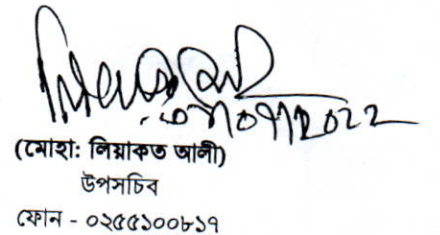 (মোহা: লিয়াকত আলী)
উপসচিব
ফোন - ০২৫৫১০০৮১৭